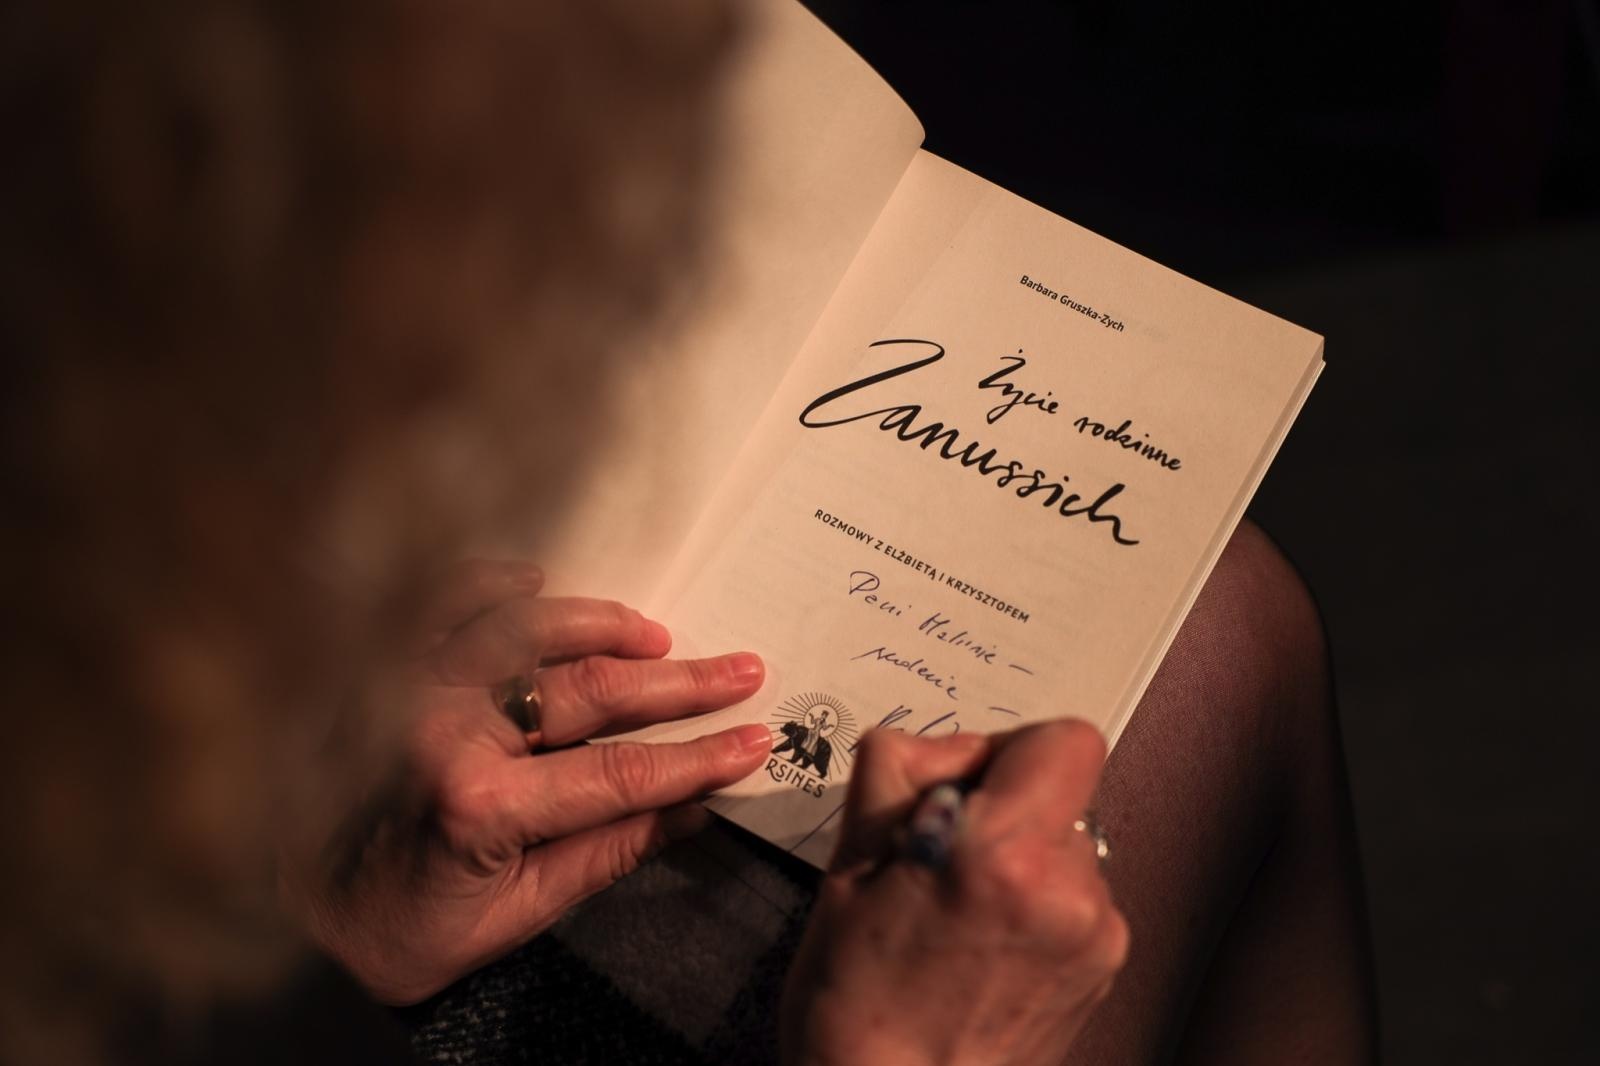 Barbara Gruszka-Zych
Życie rodzinne
Zanussich
ROZMOWY Z ELŻBIETĄ I KRZYSZTOFEM
Pani Halinie –
serdecznie –
RSINES